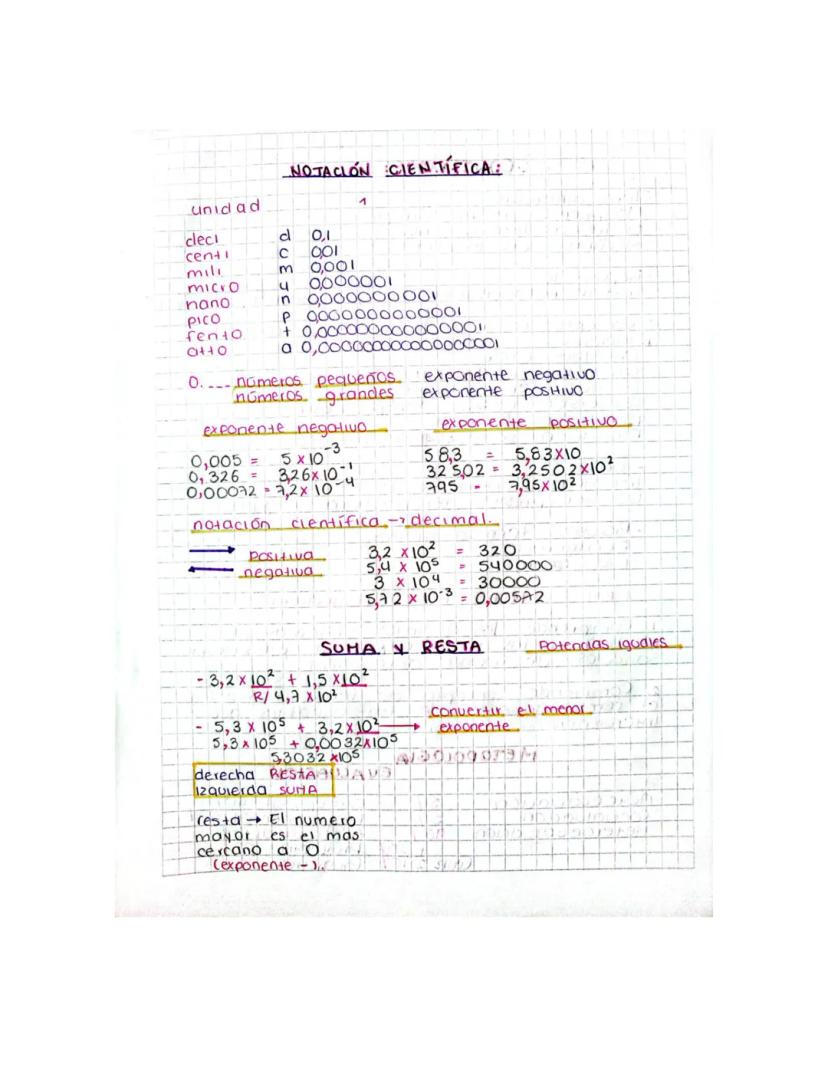 NOTACIÓN CIENTÍFICA:
unidad 1
deci d 0,1
centi c 0,01
mili m 0,001
micro u 0,000001
nano n 0,000000001
pico p 0,000000000001
fento t 0,000000000000001
atto a 0,000000000000000001
0.--- números pequeños exponente negativo
números grandes exponente positivo
exponente negativo exponente positivo
0,005 = 5 x 10⁻³ 58,3 = 5,83x10
0,326 = 3,26x 10⁻¹ 325,02 = 3,2502x10²
0,00072 = 7,2x 10⁻⁴ 795 - 7,95x10²
notación científica → decimal.
→ positiva 3,2 x10² = 320
← negativa 5,4 x 10⁵ = 540000
3 x 10⁴ = 30000
5,72 x 10⁻³ = 0,00572
SUMA Y RESTA Potencias iguales
- 3,2 x 10² + 1,5 x10²
R/ 4,7 x 10²
- 5,3 x 10⁵ + 3,2x10² → convertir el menor exponente
5,3x 10⁵ + 0,0032x10⁵
5,3032 x10⁵
derecha RESTA
izquierda SUMA
resta → El numero
mayor es el mas
cercano a 0
(exponente -).